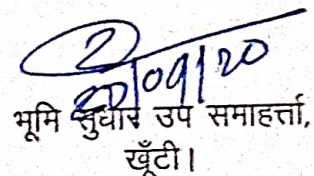 22/09/20
भूमि सुधार उप समाहर्त्ता,
खूँटी।